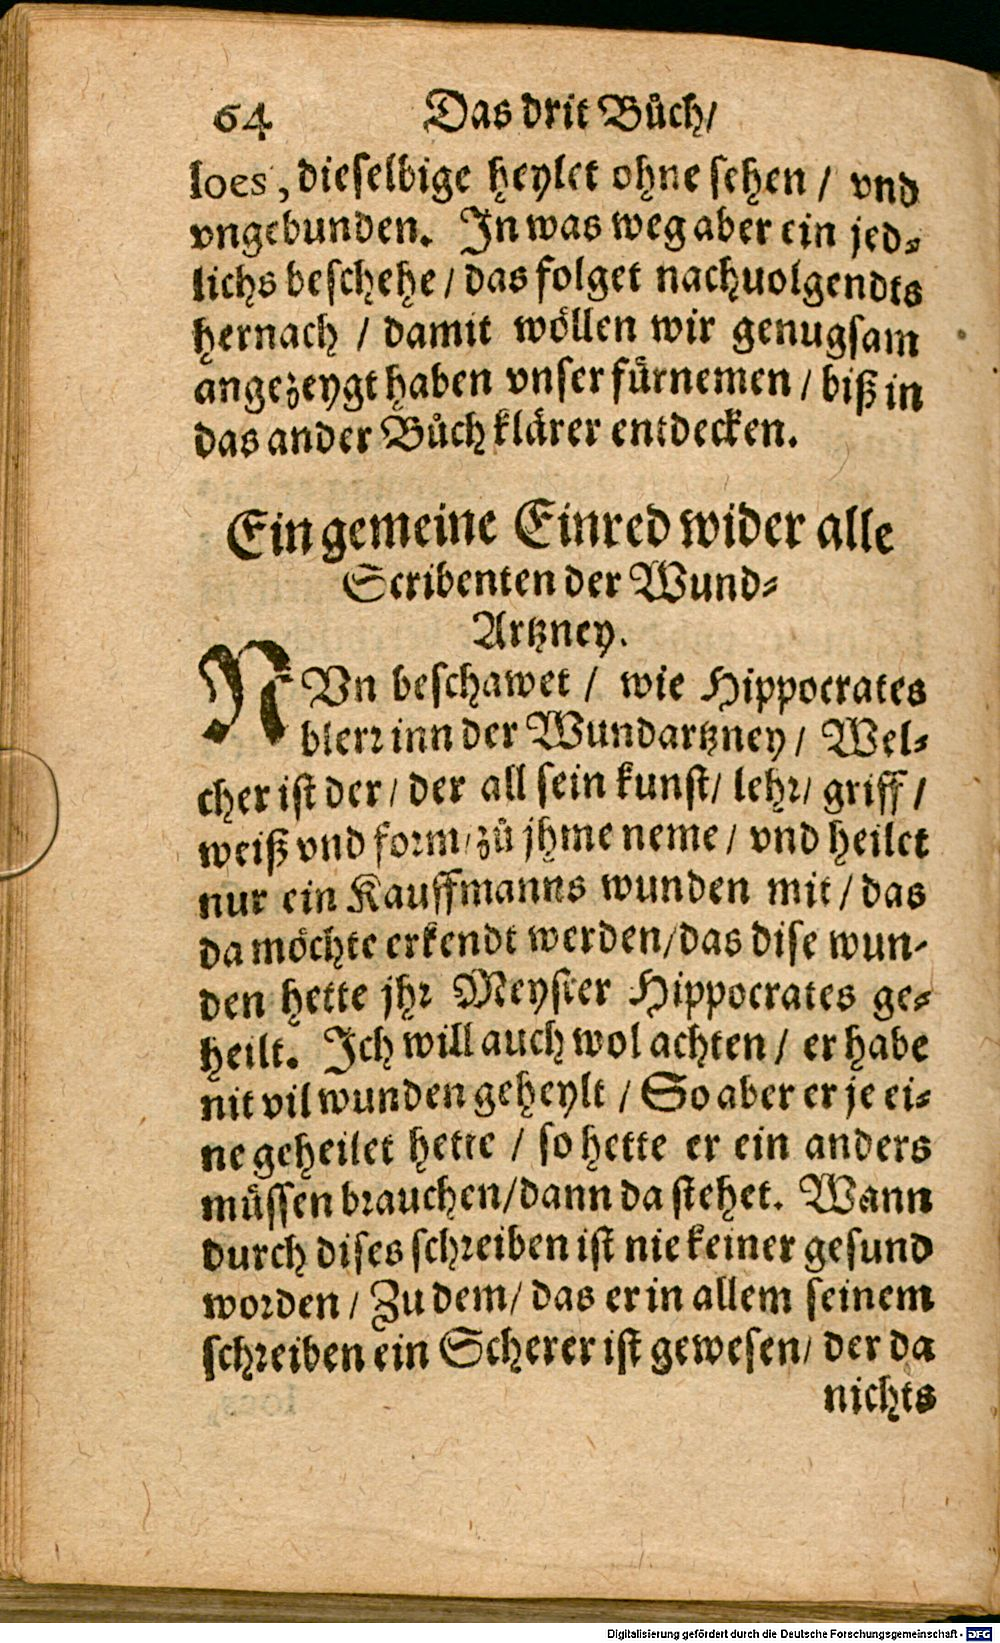 64 Das drit Bůch/
loes, dieselbige heylet ohne sehen / vnd
vngebunden. In was weg aber ein jed⸗
lichs beschehe / das folget nachuolgendts
hernach / damit wöllen wir genugsam
angezeygt haben vnser fürnemen / biß in
das ander Bůch klärer entdecken.
Ein gemeine Einred wider alle
Scribenten der Wund⸗
Artzney.
NVn beschawet / wie Hippocrates
blerr inn der Wundartzney / Wel⸗
cher ist der / der all sein kunst / lehr / griff /
weiß vnd form / zů jhme neme / vnd heilet
nur ein Kauffmanns wunden mit / das
da möchte erkendt werden / das dise wun⸗
den hette jhr Meyster Hippocrates ge⸗
heilt. Ich will auch wol achten / er habe
nit vil wunden geheylt / So aber er je ei⸗
ne geheilet hette / so hette er ein anders
müssen brauchen / dann da stehet. Wann
durch dises schreiben ist nie keiner gesund
worden / Zu dem / das er in allem seinem
schreiben ein Scherer ist gewesen / der da
nichts
Digitalisierung gefördert durch die Deutsche Forschungsgemeinschaft - DFG